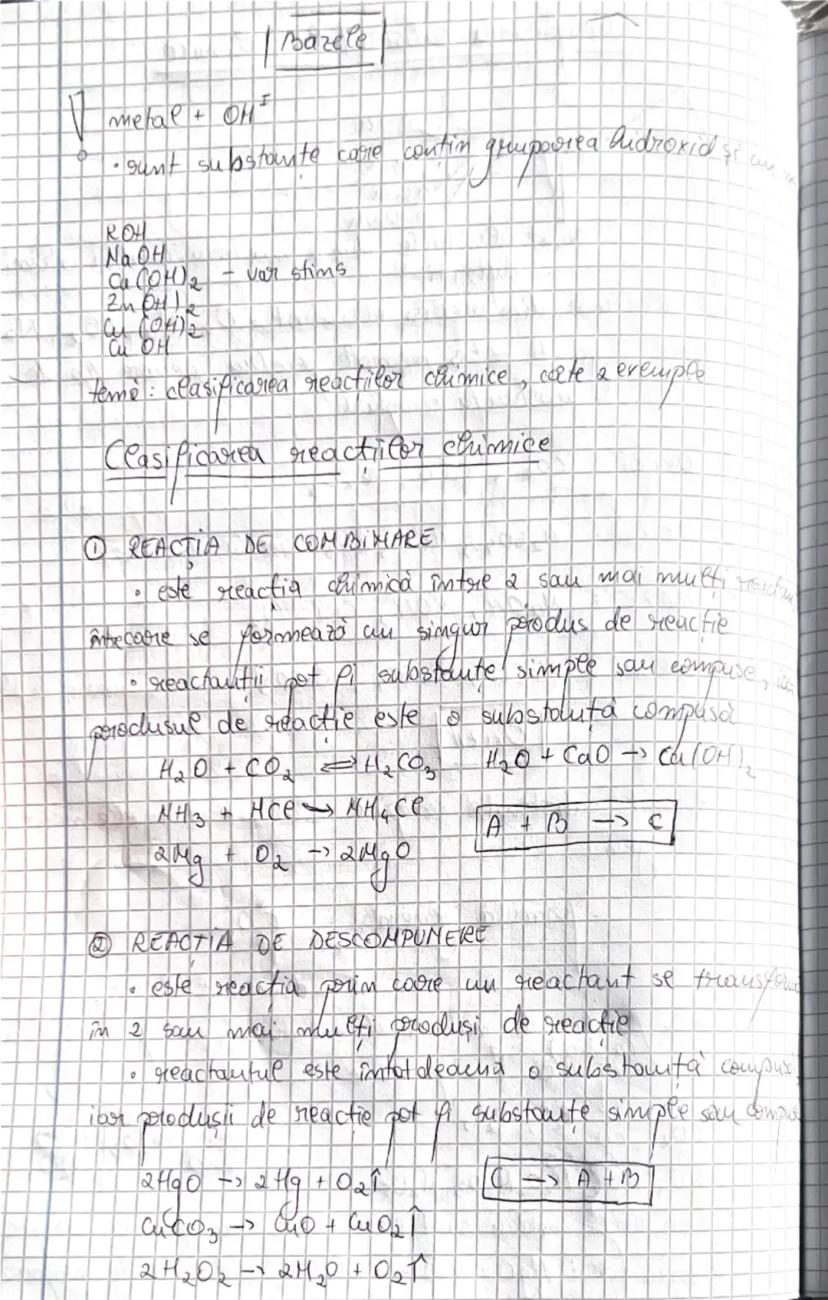 Bazele
! metal + OH^I
• sunt substanțe care conțin grupoarea hidroxid și un
KOH
NaOH
Ca(OH)2 - var stins
Zn(OH)2
Cu(OH)2
Cu OH
temă: clasificarea reacțiilor chimice, cate 2 exemple
Clasificarea reacțiilor chimice
① REACȚIA DE COMBINARE
• este reacția chimică între 2 sau mai mulți
întecare se formează un singur produs de reacție
• reactanții pot fi substanțe simple sau compuse,
produsul de reacție este o substanță compusă
H2O + CO2 ⇌ H2CO3 H2O + CaO → Ca(OH)2
NH3 + HCl → NH4Cl
A + B → C
2Mg + O2 → 2MgO
② REACȚIA DE DESCOMPUNERE
• este reacția prin care un reactant se transform
în 2 sau mai mulți produși de reacție
• reactantul este întotdeauna o substanță compus
iar produșii de reacție pot fi substanțe simple sau compus
2HgO → 2Hg + O2↑ C → A + B
CuCO3 → CuO + CuO2↑
2H2O2 → 2H2O + O2↑